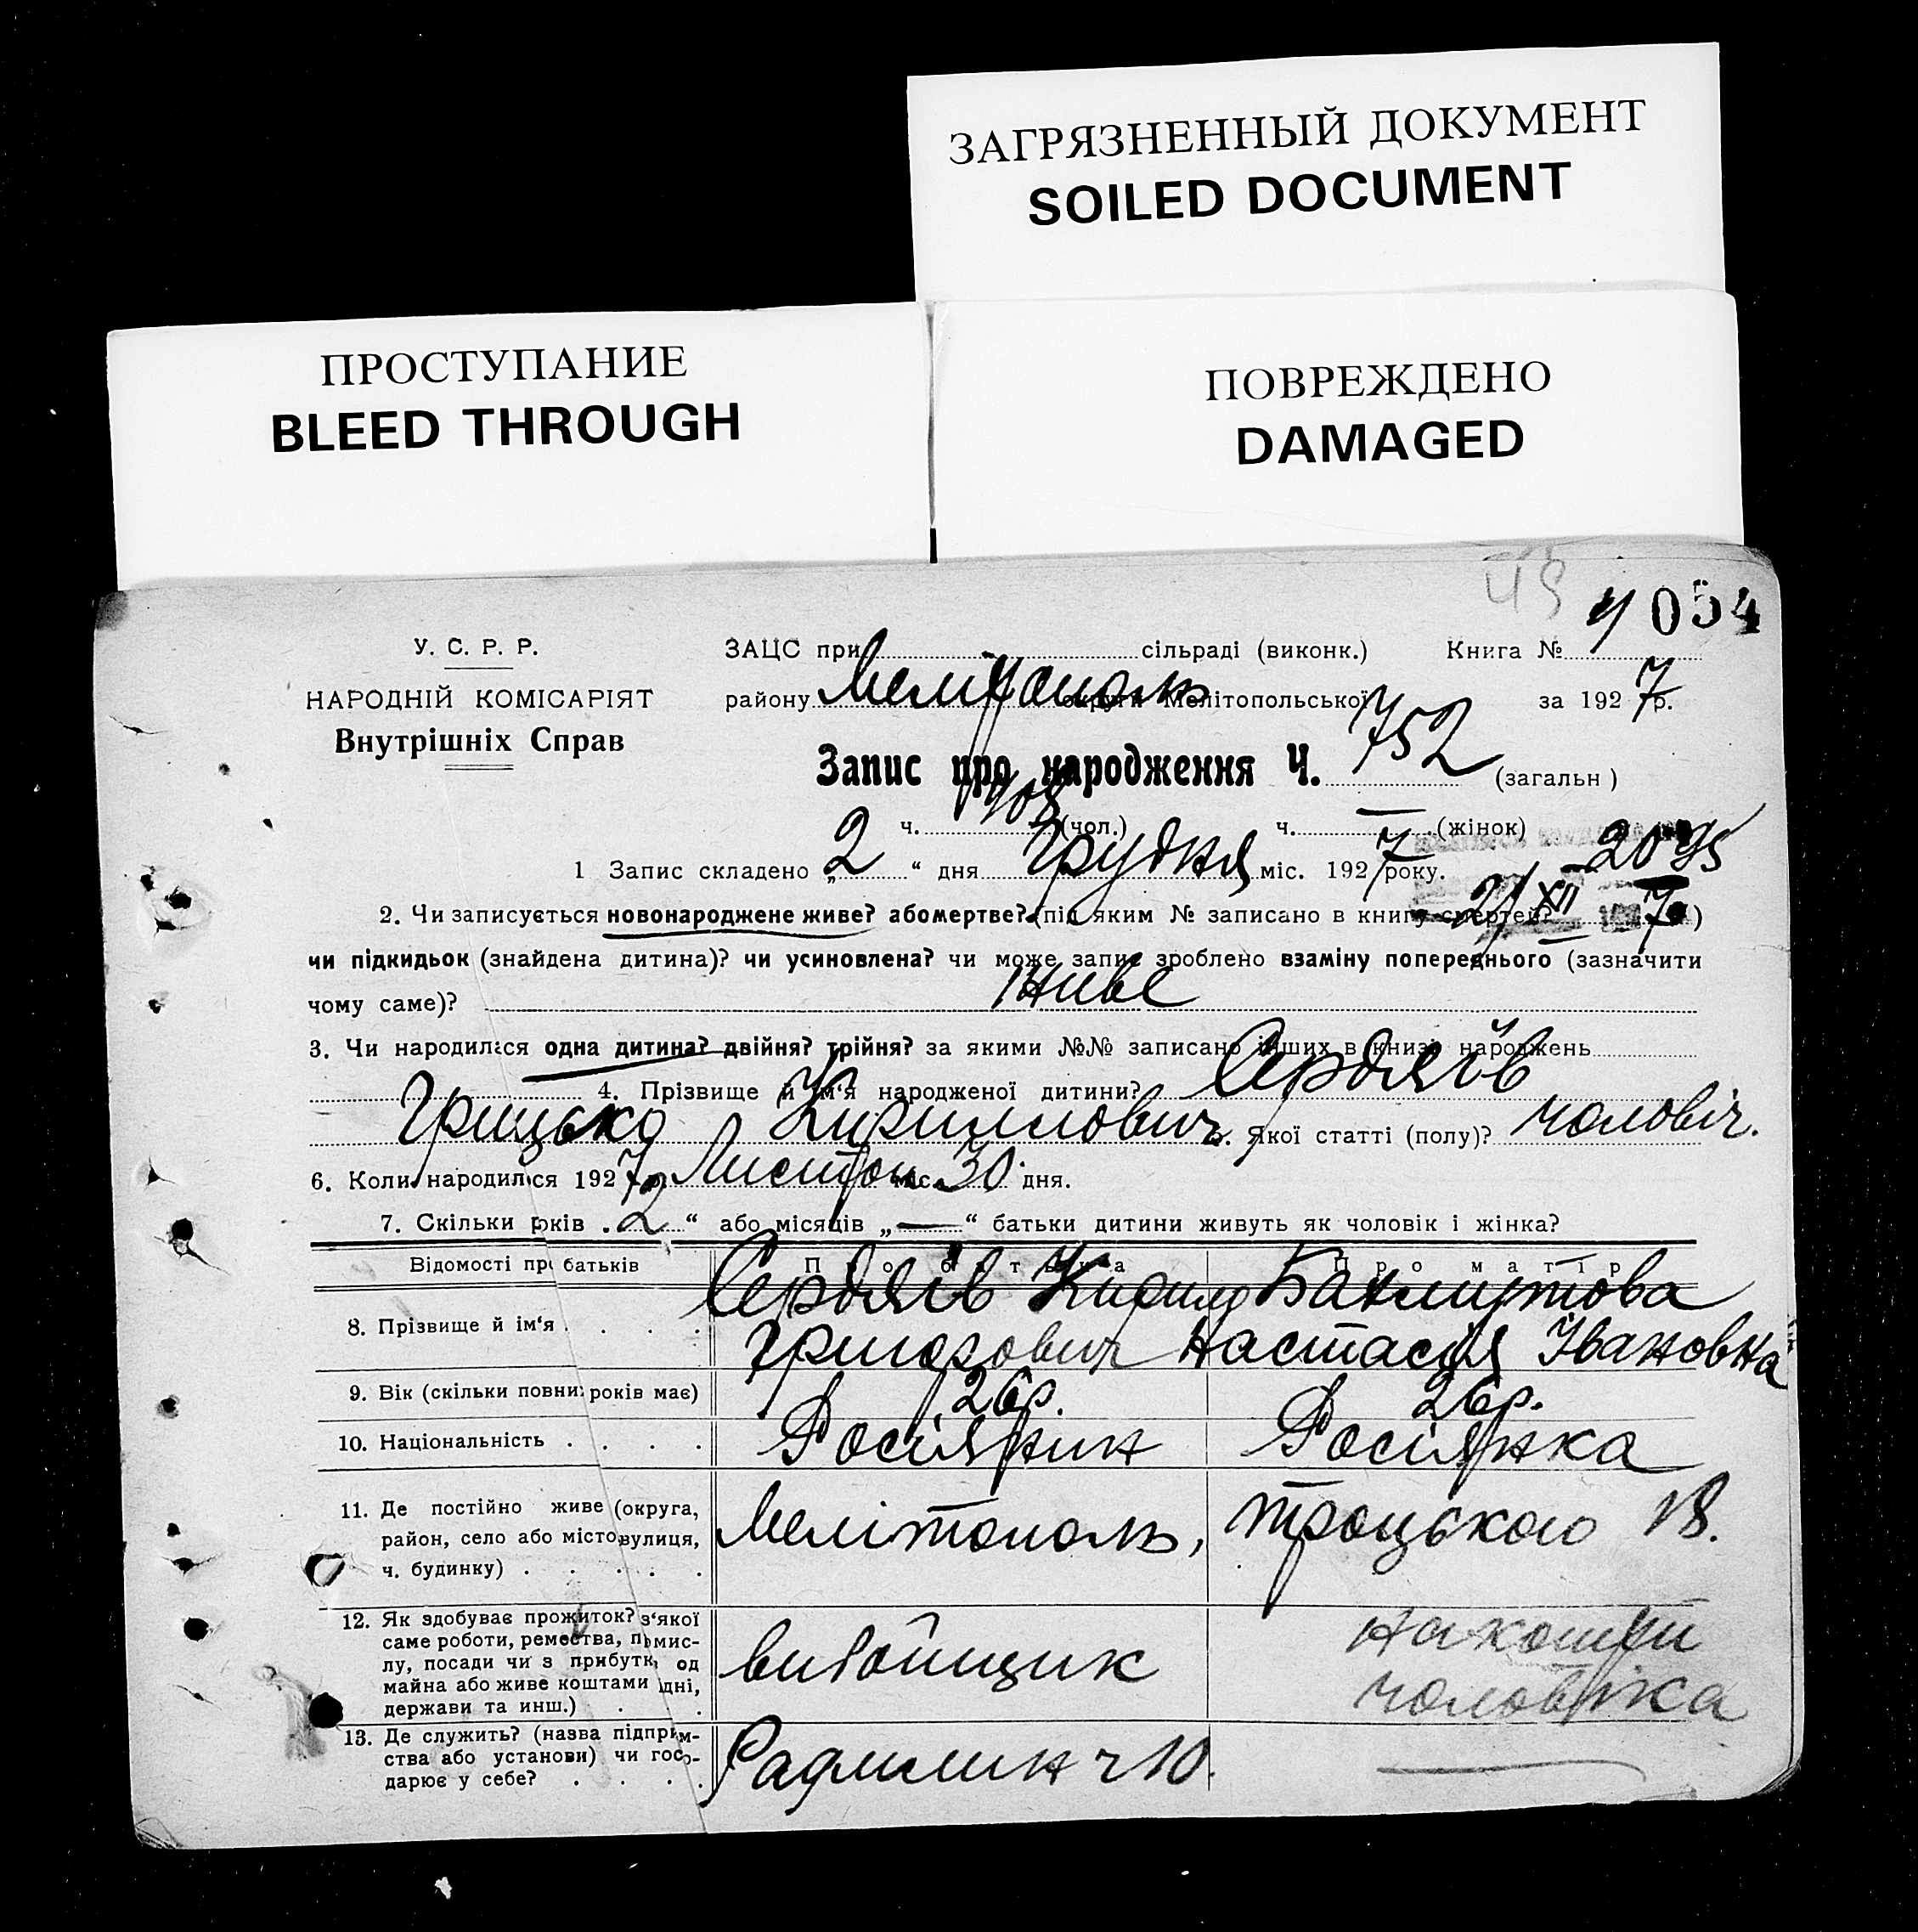 ЗАГРЯЗНЕННЫЙ ДОКУМЕНТ
SOILED DOCUMENT
ПРОСТУПАНИЕ
BLEED THROUGH
ПОВРЕЖДЕНО
DAMAGED
У. С. Р. Р.
НАРОДНІЙ КОМІСАРІЯТ
Внутрішніх Справ
054
ЗАЦС при сільраді (виконк.) Книга №
району Мелітополь округи Мелітопольської за 1927 р.
Запис про народження Ч. 752 (загальн)
ч. (чол.) ч. — (жінок)
1 Запис складено „2“ дня Грудня міс. 1927 року.
2. Чи записується новонароджене живе? або мертве? (під яким № записано в книгу смертей? )
чи підкидьок (знайдена дитина)? чи усиновлена? чи може запис зроблено взаміну попереднього (зазначити
чому саме)? живе
3. Чи народилася одна дитина? двійня? трійня? за якими №№ записано інших в книзі народжень
4. Прізвище й ім'я народженої дитини? Сердяєів
Грицько Кирилович 5. Якої статті (полу)? чоловіч.
6. Коли народився 1927 р. Листоп міс. 30 дня.
7. Скільки років „2“ або місяців „—“ батьки дитини живуть як чоловік і жінка?
Відомості про батьків Про батька Про матір
8. Прізвище й ім'я Кирило
Григорович Настасія Івановна
9. Вік (скільки повних років має) 26р. 26р.
10. Національність Росіянин Росіянка
11. Де постійно живе (округа,
район, село або місто, вулиця,
ч. будинку) Мелітополь, Троцького 18.
12. Як здобуває прожиток? з'якої
саме роботи, ремества, промис-
лу, посади чи з прибутків од
майна або живе коштами рідні,
держави та инш.) вибойщик на кошти
чоловіка
13. Де служить? (назва підприєм-
ства або установи) чи госпо-
дарює у себе? Радмлин ч 10.